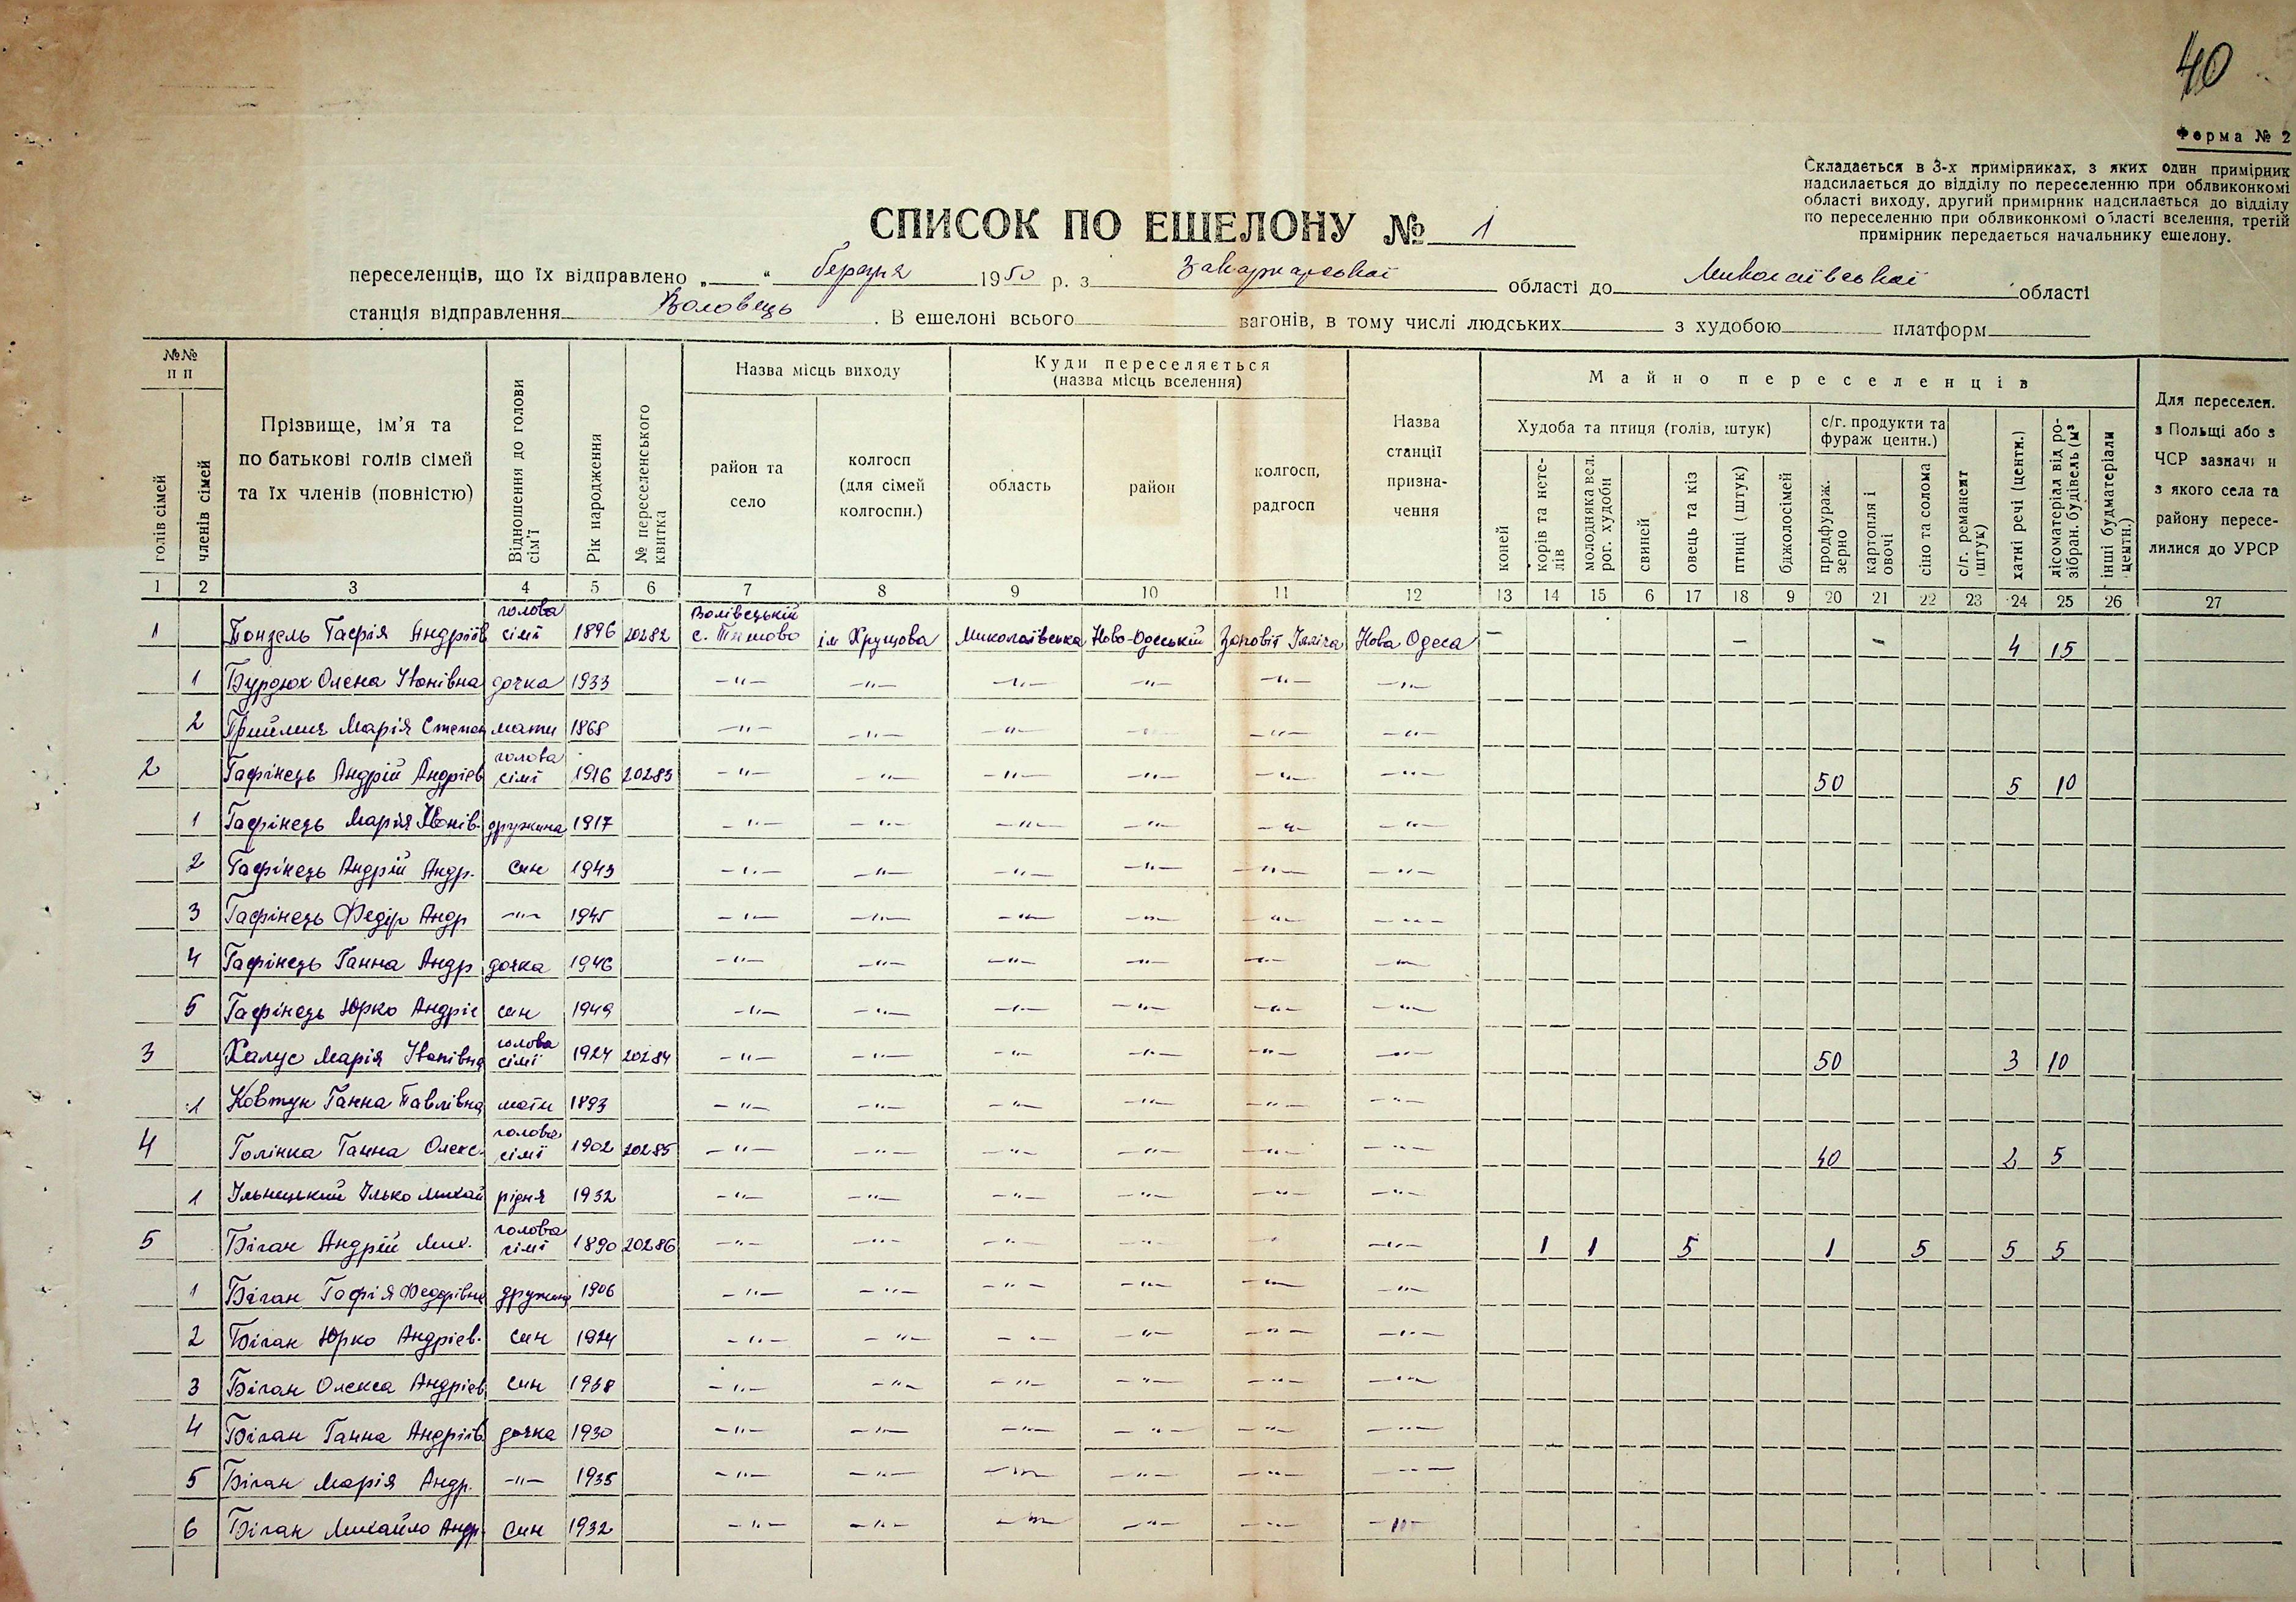 40
Форма № 2
Складається в 3-х примірниках, з яких один примірник
надсилається до відділу по переселенню при облвиконкомі
області виходу, другий примірник надсилається до відділу
по переселенню при облвиконкомі області вселення, третій
примірник передається начальнику ешелону.
СПИСОК ПО ЕШЕЛОНУ № 1
переселенців, що їх відправлено „ “ березня 1950 р. з Закарпатської області до Миколаївської області
станція відправлення Воловець. В ешелоні всього вагонів, в тому числі людських з худобою платформ
№№ п п
голів сімей
членів сімей
Прізвище, ім'я та
по батькові голів сімей
та їх членів (повністю)
Відношення до голови сім'ї
Рік народження
№ переселенського квитка
Назва місць виходу
район та
село
колгосп
(для сімей
колгоспн.)
Куди переселяється
(назва місць вселення)
область
район
колгосп,
радгосп
Назва
станції
призна-
чення
Майно переселенців
Худоба та птиця (голів, штук)
коней
корів та нетелів
молодняка вел. рог. худоби
свиней
овець та кіз
птиці (штук)
бджолосімей
с/г. продукти та
фураж центн.)
продфураж. зерно
картопля і овочі
сіно та солома
с/г. реманент (штук)
хатні речі (центн.)
лісоматеріал від розібран. будівель (м³
інші будматеріали центн.)
Для переселен.
з Польщі або з
ЧСР зазначи и
з якого села та
району пересе-
лилися до УРСР
1 2 3 4 5 6 7 8 9 10 11 12 13 14 15 6 17 18 9 20 21 22 23 24 25 26 27
1 Понзель Гафія Андріїв голова сімї 1896 20282 Волівецькій с. Тишово ім Хрущова Миколаївська Ново-Одеський Заповіт Ілліча Нова Одеса — — - 4 15
1 Бурдюх Олена Іванівна дочка 1933 -"- -"- -"- -"- -"- -"-
2 Приймич Марія Степан мати 1868 -"- -"- -"- -"- -"- -"-
2 Гафінець Андрій Андрієв голова сімї 1916 20283 -"- -"- -"- -"- -"- -"- 50 5 10
1 Гафінець Марія Іванів. дружина 1917 -"- -"- -"- -"- -"- -"-
2 Гафінець Андрій Андр. син 1943 -"- -"- -"- -"- -"- -"-
3 Гафінець Федір Андр -"- 1945 -"- -"- -"- -"- -"- -"-
4 Гафінець Ганна Андр дочка 1946 -"- -"- -"- -"- -"- -"-
5 Гафінець Юрко Андріє син 1949 -"- -"- -"- -"- -"- -"-
3 Халус Марія Іванівна голова сімї 1924 20284 -"- -"- -"- -"- -"- -"- 50 3 10
1 Ковтун Ганна Павлівна мати 1893 -"- -"- -"- -"- -"- -"-
4 Голінка Ганна Олекс. голова сімї 1902 20285 -"- -"- -"- -"- -"- -"- 40 2 5
1 Ільницький Ілько Михай рідня 1932 -"- -"- -"- -"- -"- -"-
5 Біган Андрій Мих. голова сімї 1890 20286 -"- -"- -"- -"- -"- -"- 1 1 5 1 5 5 5
1 Біган Гафія Федорівна дружина 1906 -"- -"- -"- -"- -"- -"-
2 Біган Юрко Андрієв. син 1924 -"- -"- -"- -"- -"- -"-
3 Біган Олекса Андрієв син 1938 -"- -"- -"- -"- -"- -"-
4 Біган Ганна Андріїв. дочка 1930 -"- -"- -"- -"- -"- -"-
5 Біган Марія Андр. -"- 1935 -"- -"- -"- -"- -"- -"-
6 Біган Михайло Андр. син 1932 -"- -"- -"- -"- -"- -"-